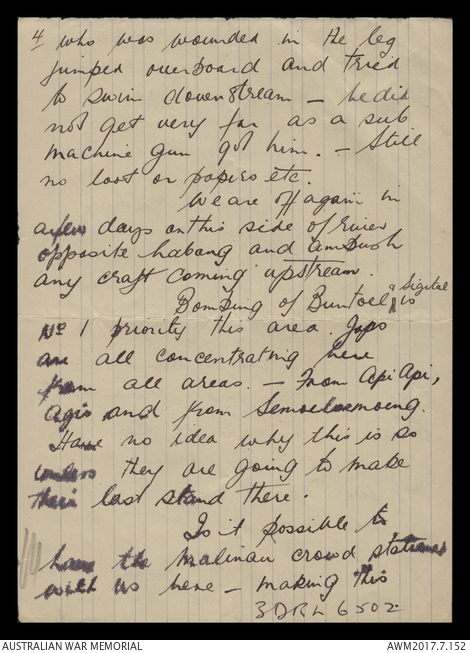 4 who was wounded in the leg
jumped overboard and tried
to swim downstream – he did
not get very far as a sub
machine gun got him. – Still
no loot or papers etc.
We are off again in
a few days on this side of river
opposite habang and ambush
any craft coming upstream.
Bombing of Buntoel & Sigital is
No 1 priority this area. Japs
are all concentrating here
from all areas. – From Api Api,
Agis and from
Have no idea why this is so
unless they are going to make
their last stand there.
Is it possible to
have the Malinau crowd stationed
with us here – making this
3DRL 6502
AUSTRALIAN WAR MEMORIAL
AWM2017.7.152